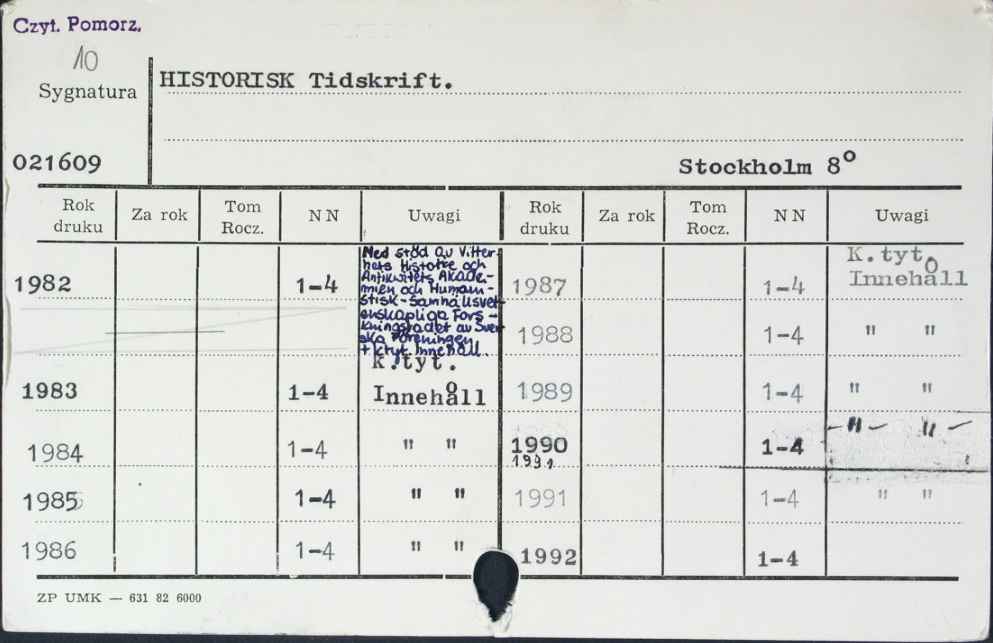 Czyt. Pomorz.
10
Sygnatura
HISTORISK Tidskrift.
021609
Stockholm 8°
Rok druku Za rok Tom Rocz. NN Uwagi Rok druku Za rok Tom Rocz. NN Uwagi
1982 1-4
Med stöd av Vitter-
hets Historie och
Antikvitets Akade-
mien och Human-
stisk-Samhällsvet-
enskapliga Fors-
kningsrådet av Sven
ska Föreningen
+ k.tyt. Innehåll.
1987 1-4 K.tyt. Innehåll
1988 1-4 " "
1983 1-4 K.tyt. Innehåll
1989 1-4 " "
1984 1-4 " "
1990 1-4 -"- "-
1991
1985 1-4 " "
1991 1-4 " "
1986 1-4 " "
1992 1-4
ZP UMK — 631 82 6000